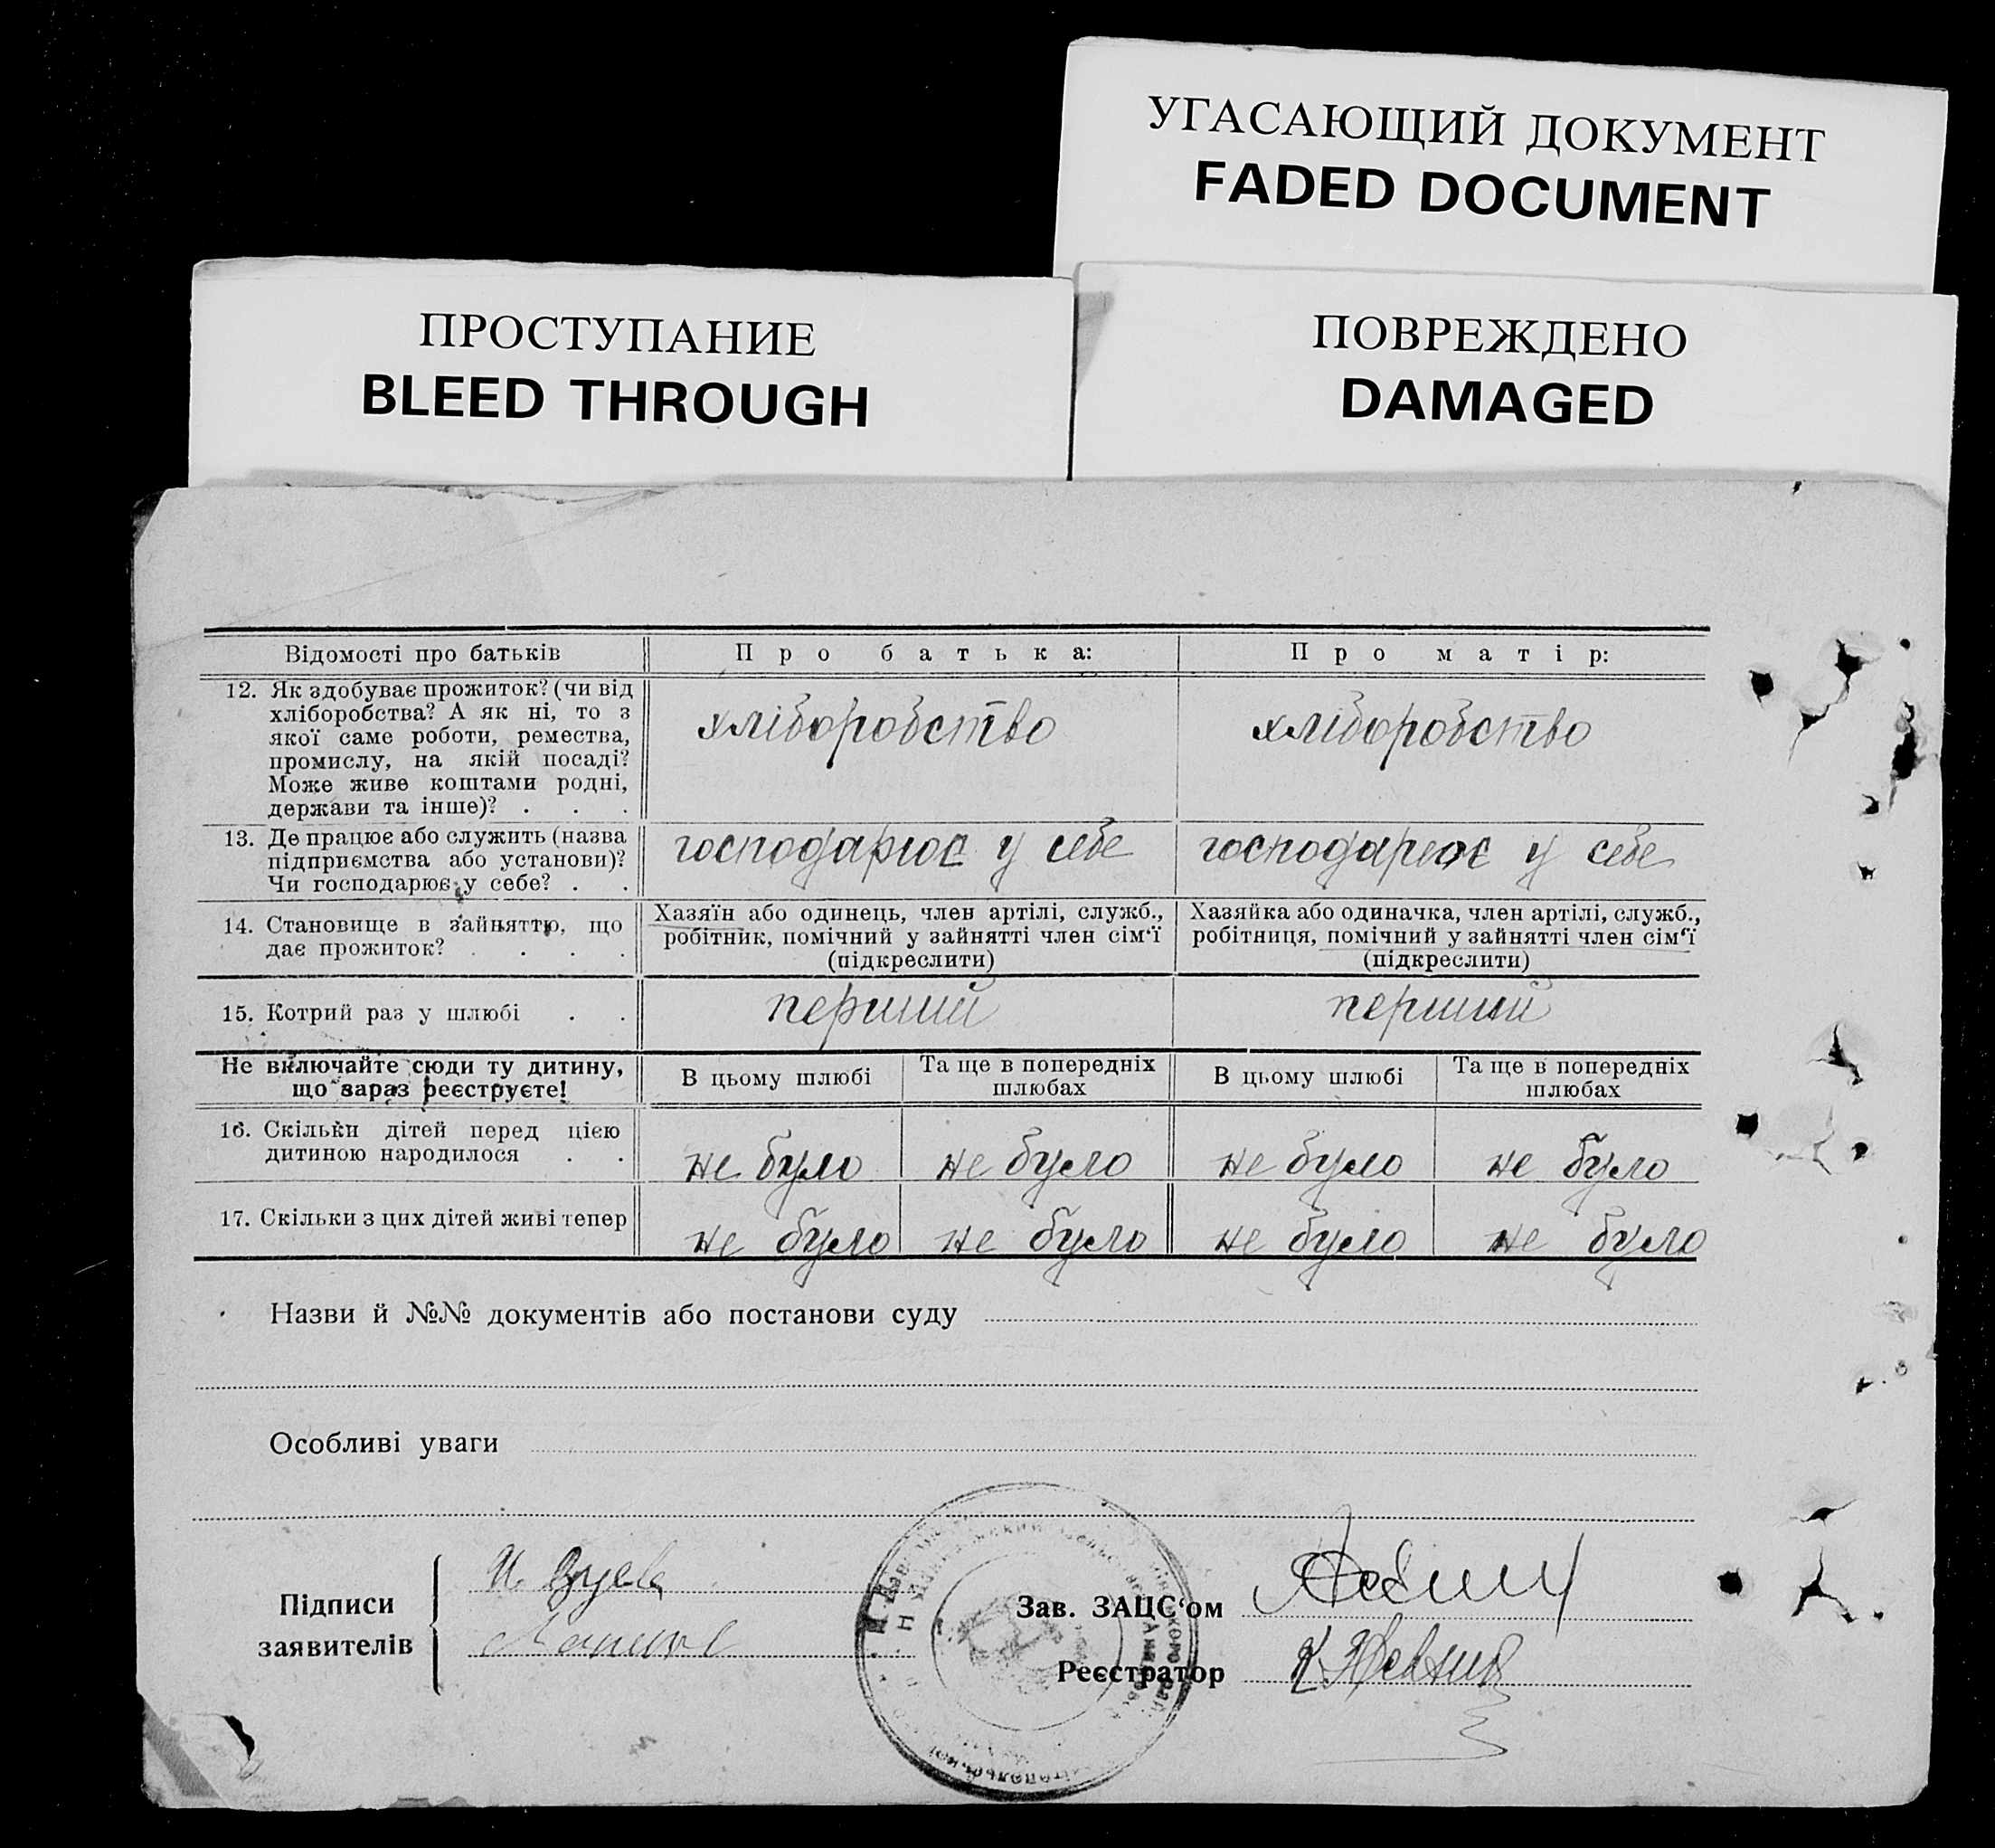 УГАСАЮЩИЙ ДОКУМЕНТ
FADED DOCUMENT
ПРОСТУПАНИЕ
BLEED THROUGH
ПОВРЕЖДЕНО
DAMAGED
Відомості про батьків
Про батька:
Про матір:
12. Як здобуває прожиток? (чи від
хліборобства? А як ні, то з
якої саме роботи, ремества,
промислу, на якій посаді?
Може живе коштами родні,
держави та інше)? . . .
хліборобство
хліборобство
13. Де працює або служить (назва
підприємства або установи)?
Чи господарює у себе? . .
господарює у себе
господарює у себе
14. Становище в зайняттю, що
дає прожиток? . . . .
Хазяїн або одинець, член артілі, служб.,
робітник, помічний у зайнятті член сім'ї
(підкреслити)
Хазяйка або одиначка, член артілі, служб.,
робітниця, помічний у зайнятті член сім'ї
(підкреслити)
15. Котрий раз у шлюбі . .
перший
перший
Не включайте сюди ту дитину,
що зараз реєструєте!
В цьому шлюбі
Та ще в попередніх
шлюбах
В цьому шлюбі
Та ще в попередніх
шлюбах
16. Скільки дітей перед цією
дитиною народилося . .
не було
не було
не було
не було
17. Скільки з цих дітей живі тепер
не було
не було
не було
не було
Назви й №№ документів або постанови суду
Особливі уваги
Підписи
заявителів
Зав. ЗАЦС'ом
Реєстратор